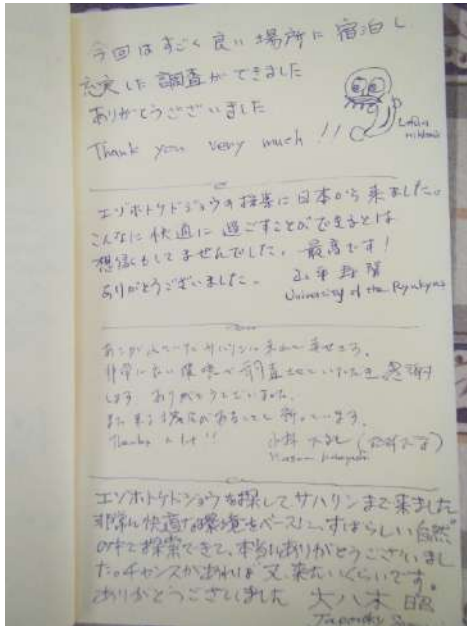 今回はすごく良い場所に宿泊し
充実した調査ができました
ありがとうございました
Thank you very much !!
エゾホトケドジョウの採集に日本から来ました。
こんなに快適に過ごすことができるとは
想像もしてませんでした。最高です!
ありがとうございました。
University of the Ryukyus
あこがれていたサハリンに来れて幸せです。
非常に良い環境で調査させていただき感謝
します ありがとうございました。
また来る機会があることを祈っています。
Thanks a lot !! 小林
エゾホトケドジョウを探してサハリンまで来ました
非常に快適な環境をベースに、すばらしい自然
の中で探索できて、本当にありがとうございまし
た。チャンスがあれば又、来たいくらいです。
ありがとうございました 大八木 昭